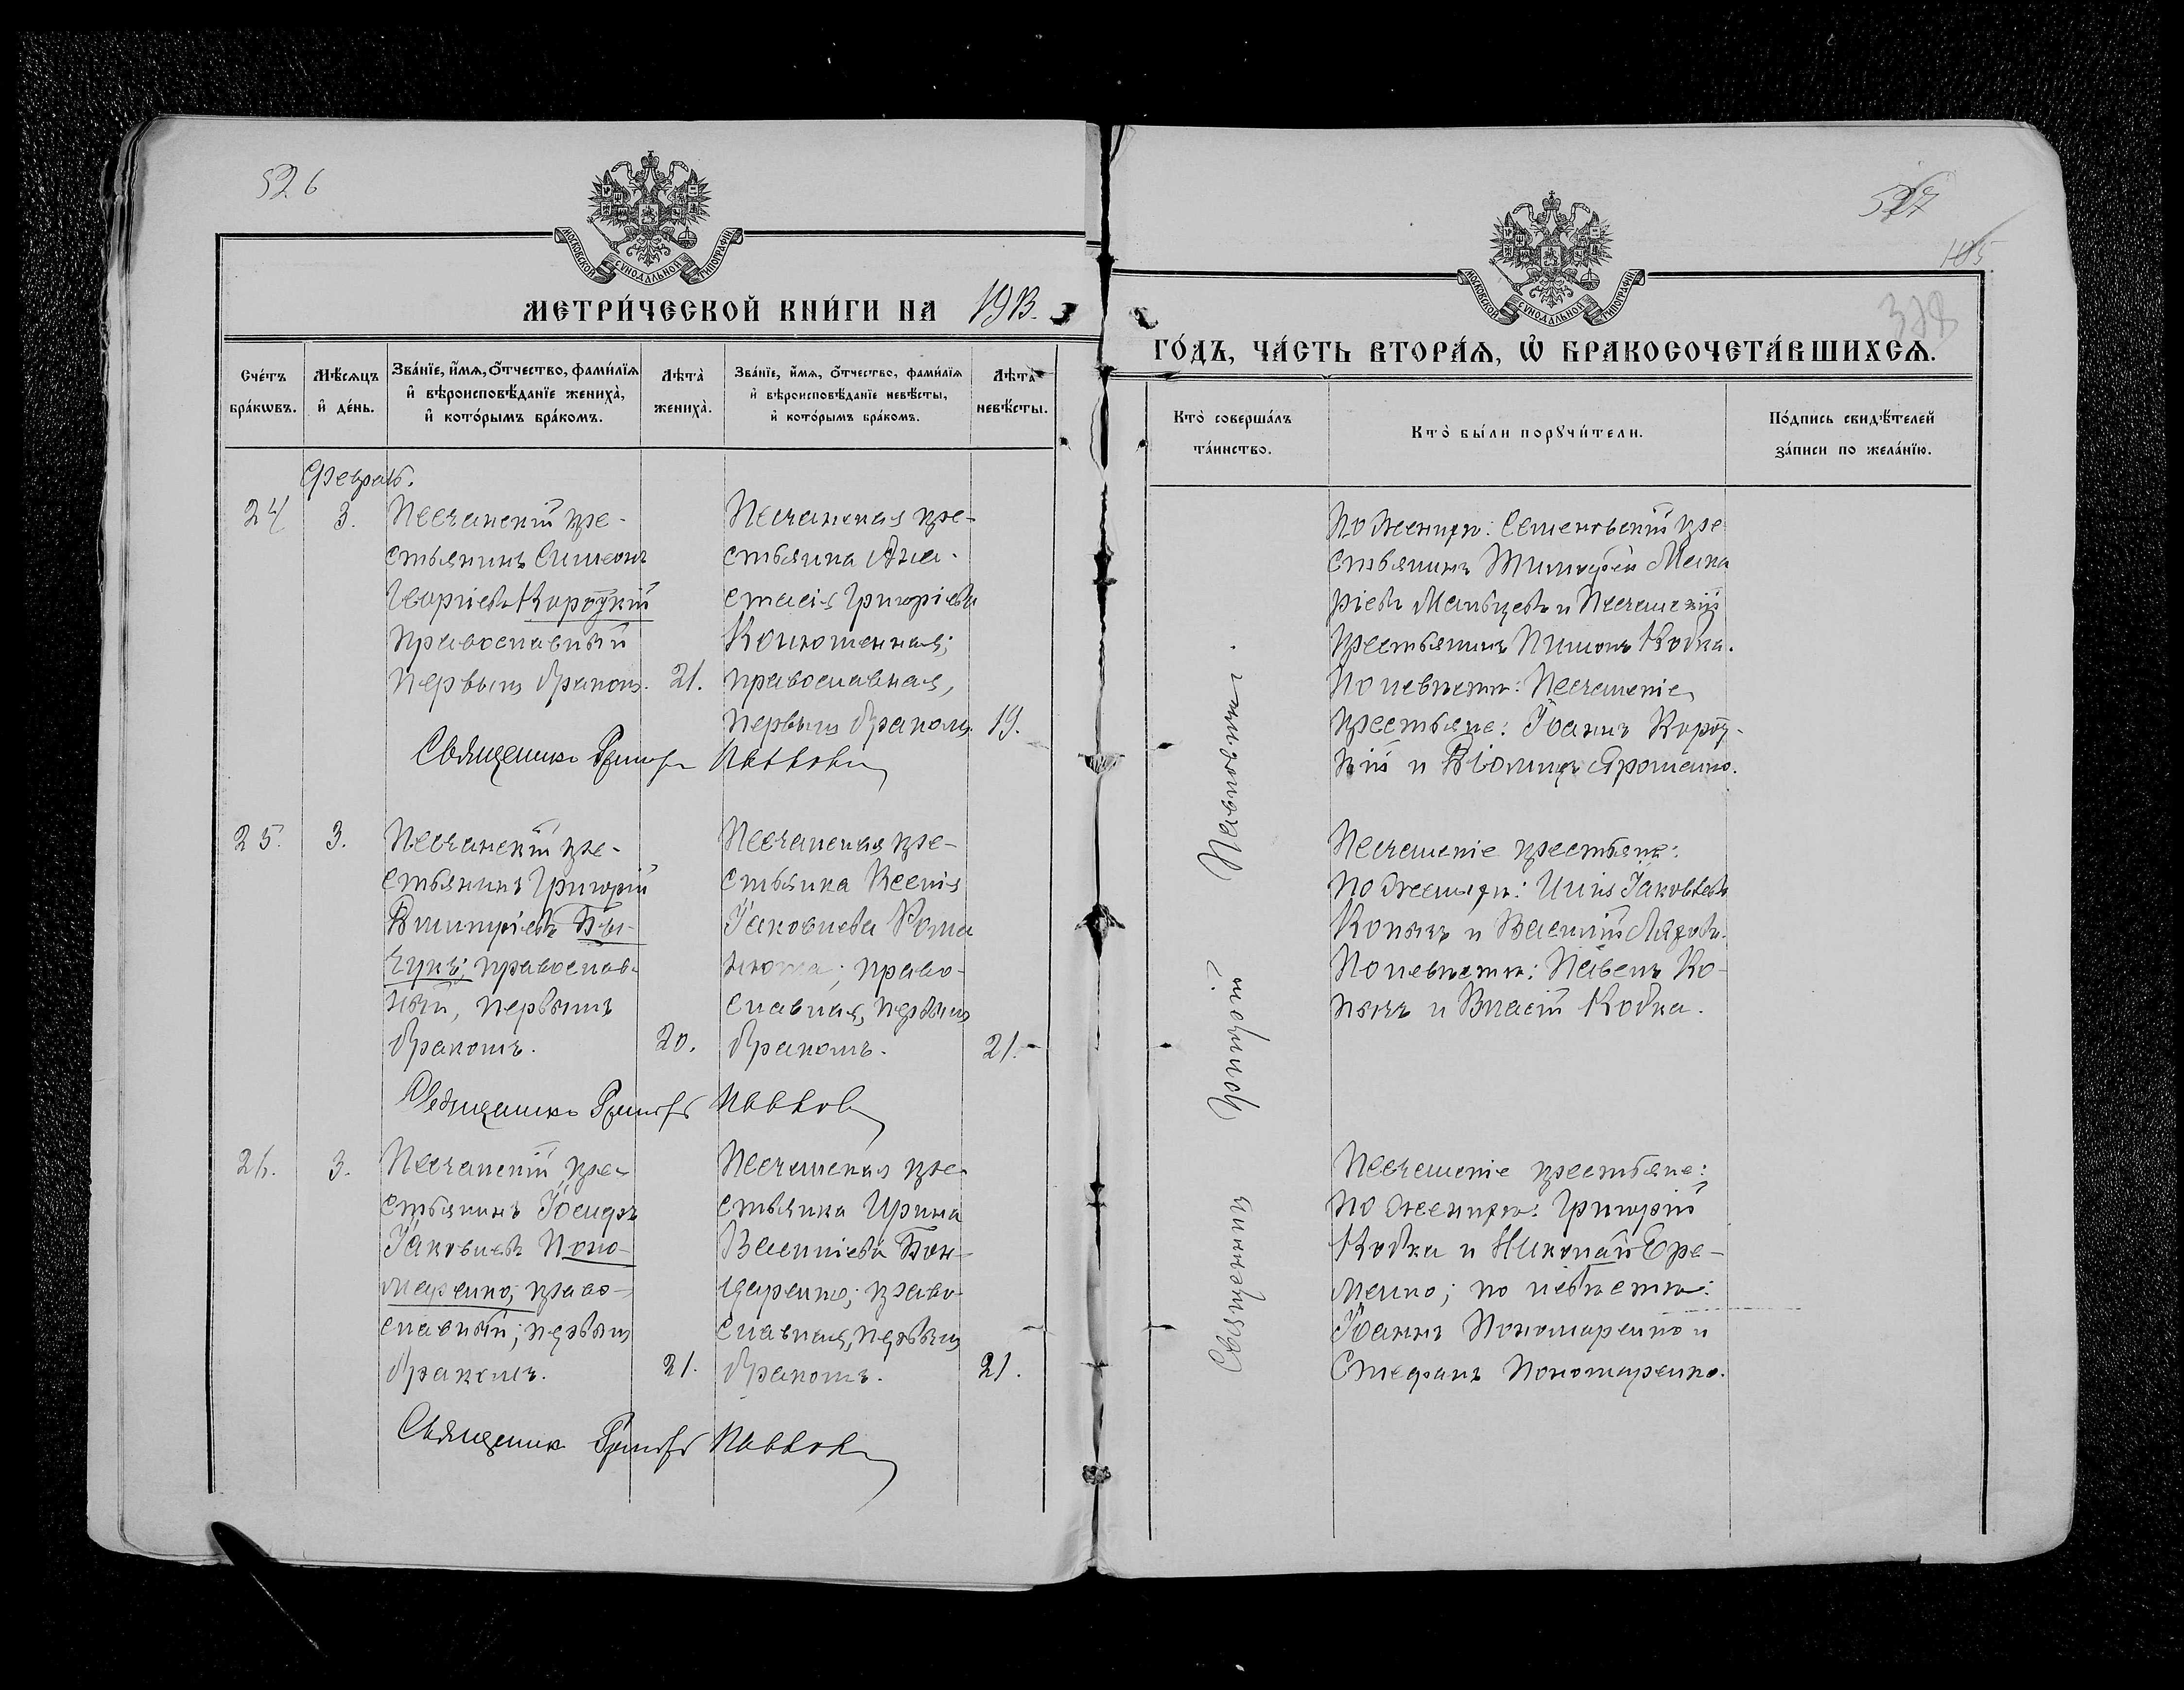 526
МОСКОВСКОЙ СУНОДАЛЬНОЙ ТИПОГРАФІИ
МЕТРИ́ЧЕСКОЙ КНИ́ГИ НА 1913.
Сче́тъ бра́кѡвъ.
Мѣ́сѧцъ и҆ де́нь.
Зва́нїе, и҆́мѧ, ѻ҆́тчество, фами́лїѧ и҆ вѣроисповѣ́данїе жениха̀, и҆ кото́рымъ бра́комъ.
Лѣ́та жениха̀.
Зва́нїе, и҆́мѧ, ѻ҆́тчество, фами́лїѧ и҆ вѣроисповѣ́данїе невѣ́сты, и҆ кото́рымъ бра́комъ.
Лѣ́та невѣ́сты.
Февраль.
24
3.
Песчанскій кре-
стьянинъ Симеонъ
Георгіевъ Короткій
православный
первымъ бракомъ.
21.
Песчанская кре-
стьянка Ана-
стасія Григоріева
Конюшенная;
православная,
первымъ бракомъ.
19.
Священникъ Григорій
25.
3.
Песчанскій кре-
стьянинъ Григорій
Димитріевъ Бы-
чукъ; православ-
ный, первымъ
бракомъ.
20.
Песчанская кре-
стьянка Ксенія
Іаковлева
право-
славная, первымъ
бракомъ.
21.
Священникъ Григорій
26.
3.
Песчанскій кре-
стьянинъ Іосифъ
Іаковлевъ Поно-
маренко; право-
славный; первымъ
бракомъ.
21.
Песчанская кре-
стьянка Ирина
Василіева Бон-
даренко; право-
славная, первымъ
бракомъ.
21.
Священникъ Григорій
527
105
378
МОСКОВСКОЙ СУНОДАЛЬНОЙ ТИПОГРАФІИ
ГО́ДЪ, ЧА́СТЬ ВТОРА́Ѧ, Ѡ҆ БРАКОСОЧЕТА́ВШИХСѦ.
Кто̀ соверша́лъ та́инство.
Кто̀ бы́ли порꙋчи́тели.
По́дпись свидѣ́телей за́писи по жела́нїю.
Священникъ Григорій
По женихѣ: Семеновскій кре
стьянинъ Тимофей Мака
ріевъ Мальцевъ и Песчанскій
крестьянинъ Пименъ Кобка.
По невѣстѣ: Песчанскіе
крестьяне: Іоаннъ Корот-
кій и Діомидъ Ярошенко.
Песчанскіе крестьяне:
по женихѣ: Илія Іаковлевъ
Копычъ и Василій
По невѣстѣ: Павелъ Ко-
пычъ и Власій Кобка.
Песчанскіе крестьяне:
по женихѣ: Григорій
Кобка и Николай Ере-
менко; по невѣстѣ:
Іоаннъ Пономаренко и
Стефанъ Пономаренко.